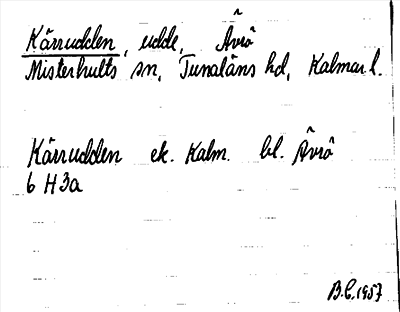 Kärrudden, udde, Ävrö
Misterhults sn, Tunaläns hd, Kalmar l.
Kärrudden ek. Kalm. bl. Ävrö
6 H3a
B.C. 1957